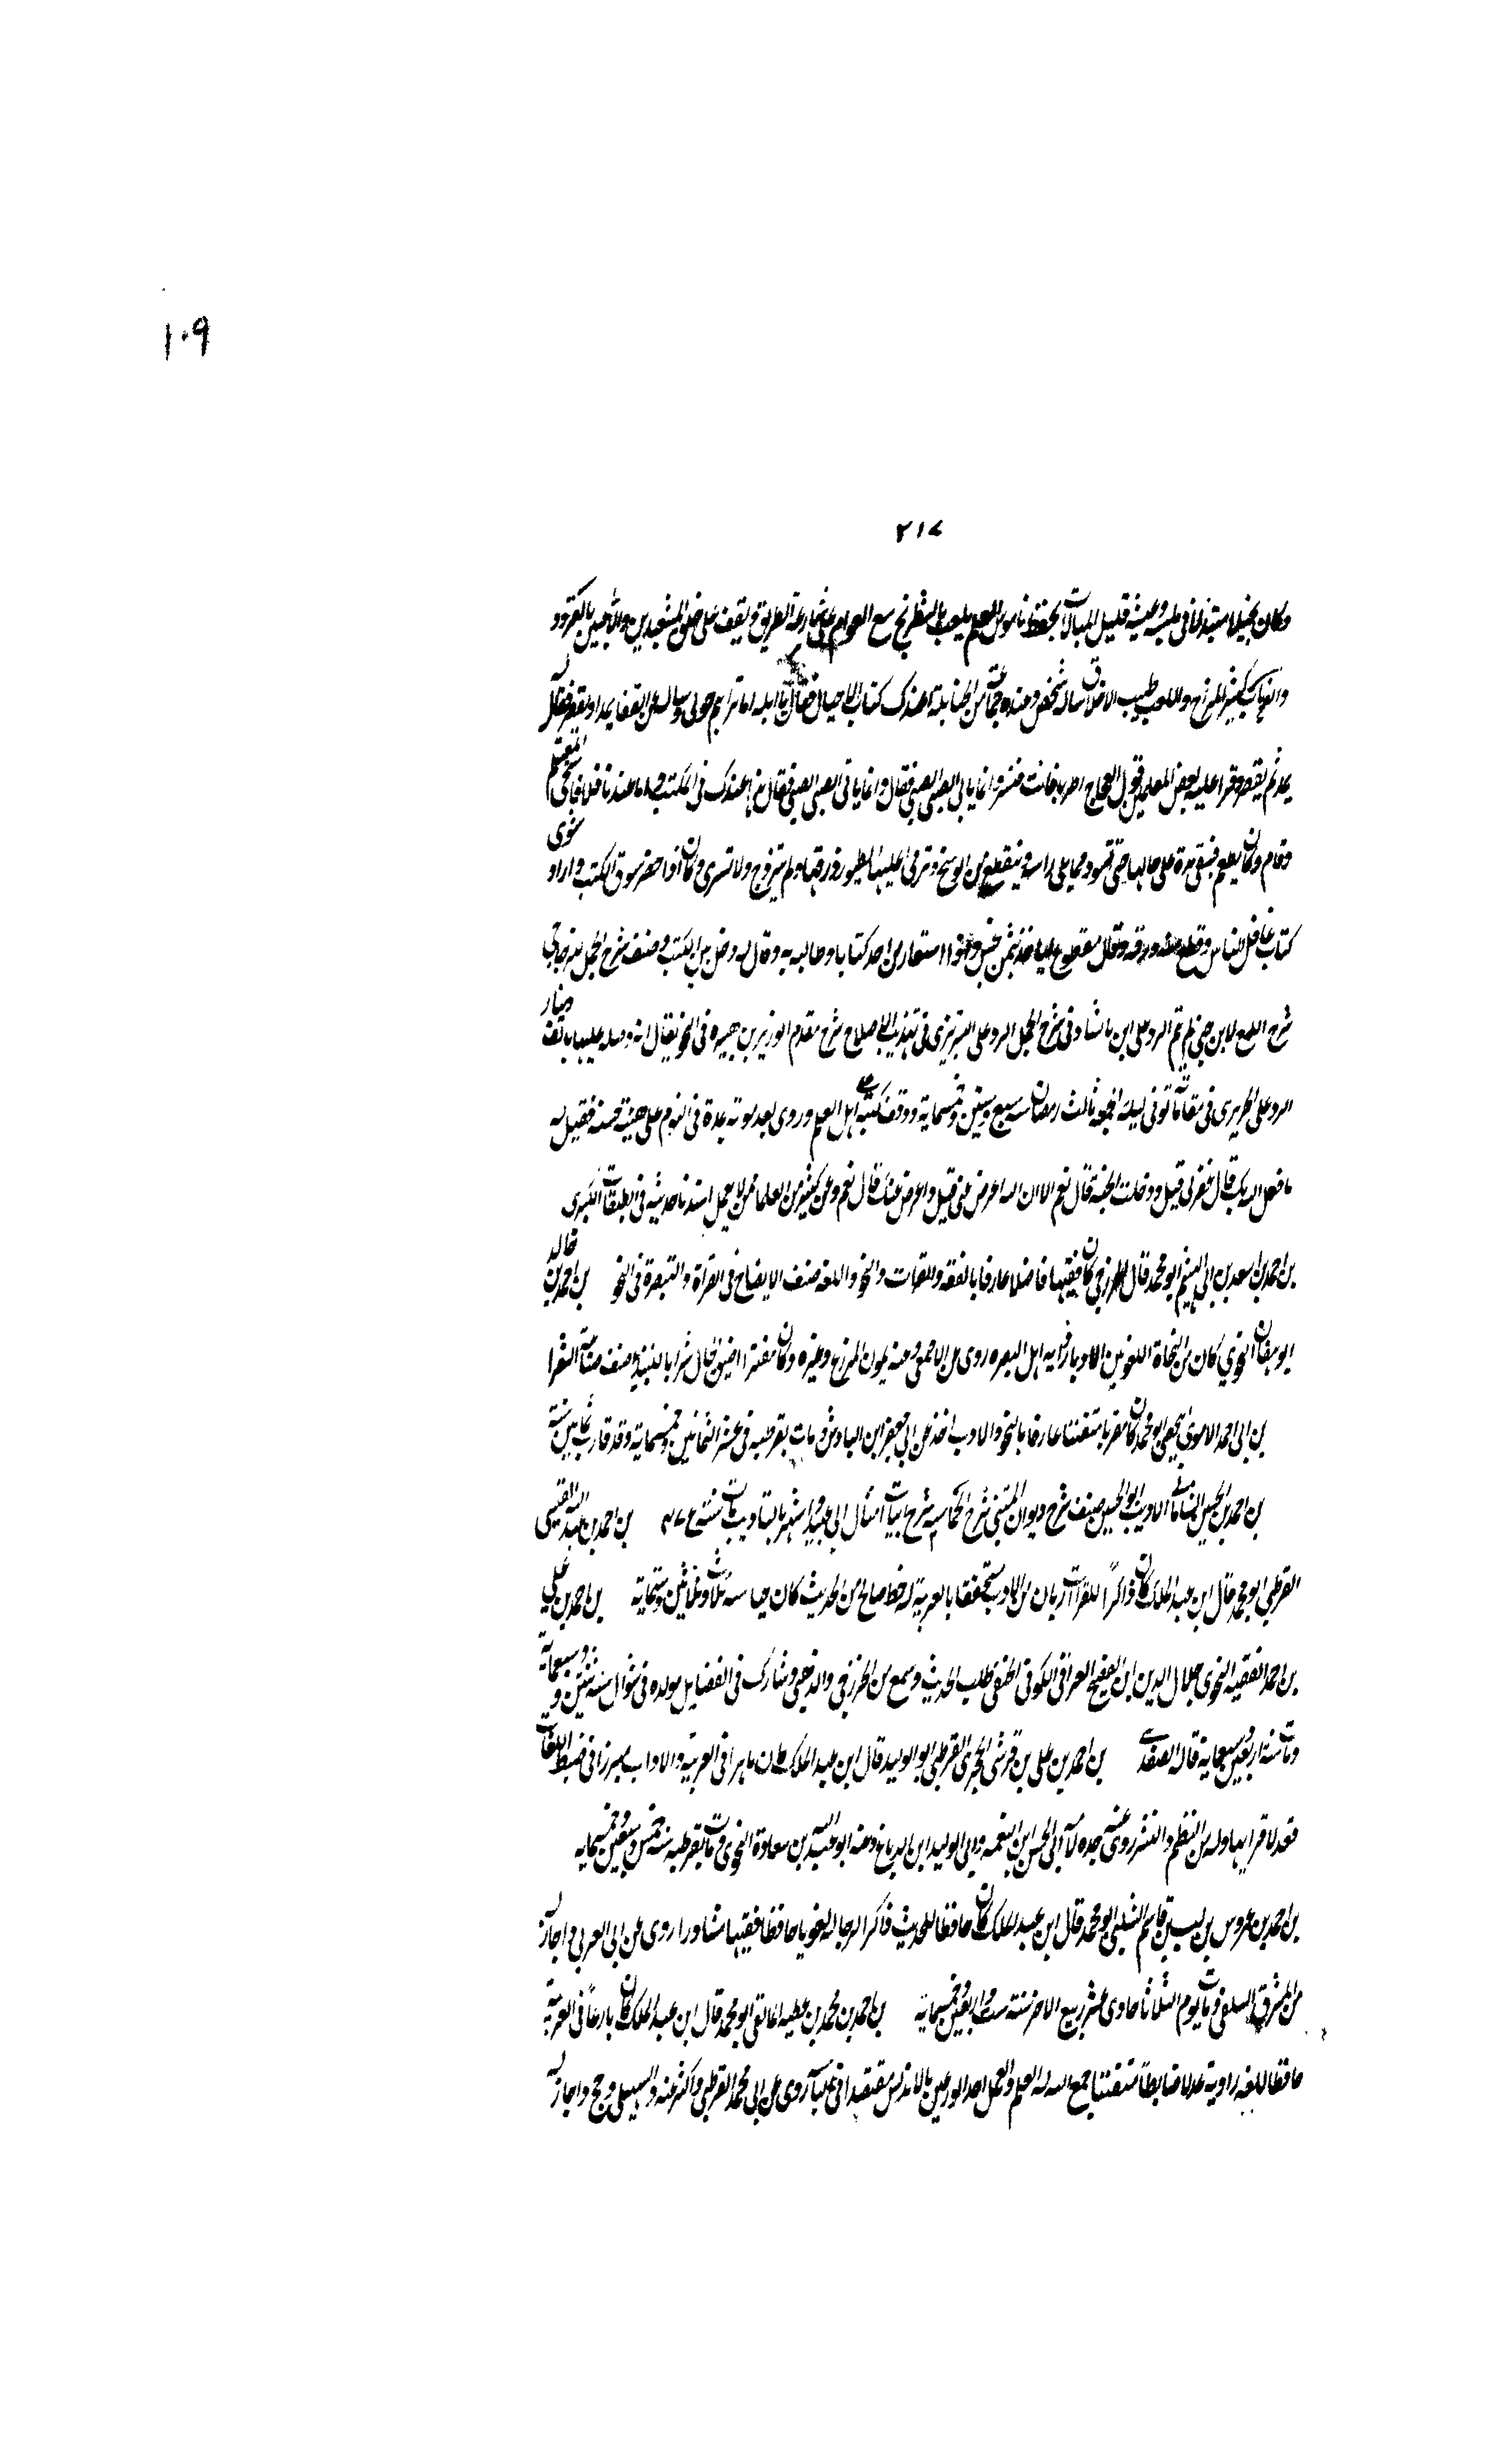 ١٠٩
٢١٧
وكان بخيلا مبتذلا في ملبسه وعيشه قليل المبالات بحفظ ناموس العلم يلعب بالشطرنج مع العوام على قارعة الطريق ويقف على حلق المشعبذين واللاعبين بالقرود
والدباب كثير المزاح واللعب طيب الاخلاق ساله شخص وعنده جماعة من الحنابلة اعندك كتاب الجبال فقال يا ابله اما تراهم حولي وساله عن القفا يمد او يقصر فقال
يمد ثم يقصر وقرا عليه بعض المعلمين قول العجاج اطربا وانت قنسري وانما ياتي الصبى الصبي فقال وانما ياتي الصبي الصبي فقال هذا عندك في المكتب واما عندنا فلا فاستحى المعلم
وقام وكان يتعمم فتبقى مدة على حالها حتى تسود مما يلي راسه وتنقطع من الوسخ وترمى عليها الطيور ذرقها ولم يتزوج ولا تسرى وكان اذا حضر سوق الكتب واراد شرى
كتاب غافل الناس وقطع منه ورقه وقال مقطوع لياخذه بثمن بخس واذا استعار من احد كتابا وطالبه به وقال له دخل بين الكتب وصنف شرح الجمل للزجاجي
شرح اللمع لابن جني لم يتم الرد على ابن بابشاد في شرح الجمل الرد على التبريزي في تهذيب الاصلاح شرح مقدم الوزير بن هبيره في النحو يقال انه وصله عليها بالف دينار
الرد على الحريري في مقاماته توفى ليلة الجمعه ثالث رمضان سنه سبع وستين وخمسماية ووقف كتبه على اهل العلم وروى بعد موته بمدة في النوم على هيئة حسنة فقيل له
ما فعل الله بك قال غفر لي قيل ودخلت الجنة قال نعم الا ان الله اعرض عني قيل واعرض عنك قال نعم وعن كثير من العلما ممن لا يعمل اسندنا حديثه في الطبقات الكبرى
بن احمد بن اسعد بن ابي الهيثم ابو محمد قال الخزرجي كان فقيها فاضلا عارفا بالفقه والقراات والنحو واللغه صنف الايضاح في القراة والتبصرة في النحو بن احمد بن خالد
ابو هفان النحوي كان من النحاة اللغويين الادبا راوية اهل البصره روى عن الاصمعي وعنه يموت بن المزرع وغيره وكان مقترا ضيق الحال شرابا للنبيذ صنف صناعة الشعرا
بن ابي احمد الاموي ابو محمد كان مقريا متفننا عارفا بالنحو والادب اخذ عن ابي جعفر ابن الباذش ومات بقرطبه في عشر الثمانين وخمسماية وقد قارب ثمانين سنة
بن احمد بن الحسين الشاماتي الاديب ابو الحسين صنف شرح ديوان المتنبي شرح الحماسه شرح ابيات امثال ابي عبيد واشتهر بالتاديب مات سنة ٤٧٥ بن احمد بن عبد الله القيسي
القرطبي ابو محمد قال ابن عبد الملك كان ذاكرا للقراات ريان من الادب متحققا بالعربية له حظ صالح من الحديث كان حيا سنه ثلاث وثمانين وستماية بن احمد بن علي
بن احمد الفقيه النحوي جلال الدين ابن الفصيح العراقي الكوفي الحنفي طلب الحديث وسمع من الجزري والذهبي وشارك في الفضايل مولده في شوال سنه ثنتين وسبعماية
ومات سنة اربعين وسبعماية قاله الصفدي بن احمد بن علي بن قرشي الحجري القرطبي ابو الوليد قال ابن عبد الملك كان ماهرا في العربية والاداب مبرزا في ضبط اللغات
قعد لاقرايها وله من النظم والنثر روى عن جده لامه ابي الحسن ابن النعمه وابي الوليد ابن الدباغ وعنه ابو عبد الله بن سعادة النحوي ومات بقرطبه سنة خمس وسبعين وخمسمايه
بن احمد بن عمروس بن لب بن قاسم الشلبي ابو محمد قال ابن عبد الملك كان حافظا للحديث ذاكرا لرجاله لغويا حافظا فقيها مشاورا روى عن ابي العربي واجاز له
من المشرق السلفي ومات يوم الثلاثا حادي عشر ربيع الاخر سنة ست واربعين وخمسماية بن احمد بن محمد بن عطيه المالقي ابو محمد قال ابن عبد الملك كان بارعا في العربية
حافظا للغه راوية عدلا ضابطا متفننا جمع الله له العلم والعمل احد الورعين بالاندلس مقتصدا في لباسه روى عن ابي محمد القرطبي واكثر عنه والسهيلي وحج واجاز له